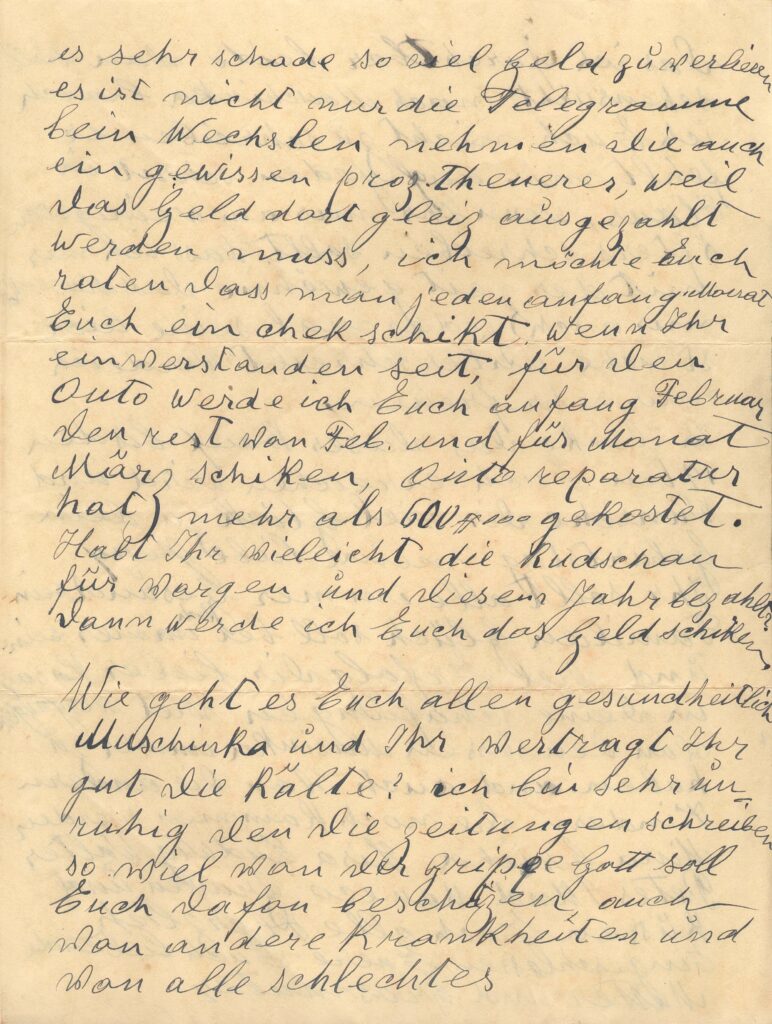 es sehr schade so viel Geld zu verlieren
es ist nicht nur die Telegramme
bein Wechslen nehmen die auch
ein gewissen proz. theuerer, weil
das Geld dort gleiz ausgezahlt
werden muss, ich möchte Euch
raten dass man jeden anfang Monat
Euch ein chek schikt. wenn Ihr
einverstanden seit, für den
Auto werde ich Euch anfang Februar
den rest von Feb. und für Monat
März schiken, Auto reparatur
hat mehr als 600 gekostet.
Habt Ihr vieleicht die Rudschau
für vorgen und diesem Jahr bezahlt?
dann werde ich Euch das Geld schiken.
Wie geht es Euch allen gesundheitlich
Muschinka und Ihr vertragt Ihr
gut die Kälte? ich bin sehr un-
ruhig den die zeitungen schreiben
so viel von der grippe Gott soll
Euch dafon beschüzen auch
von andere Krankheiten und
von alle schlechtes